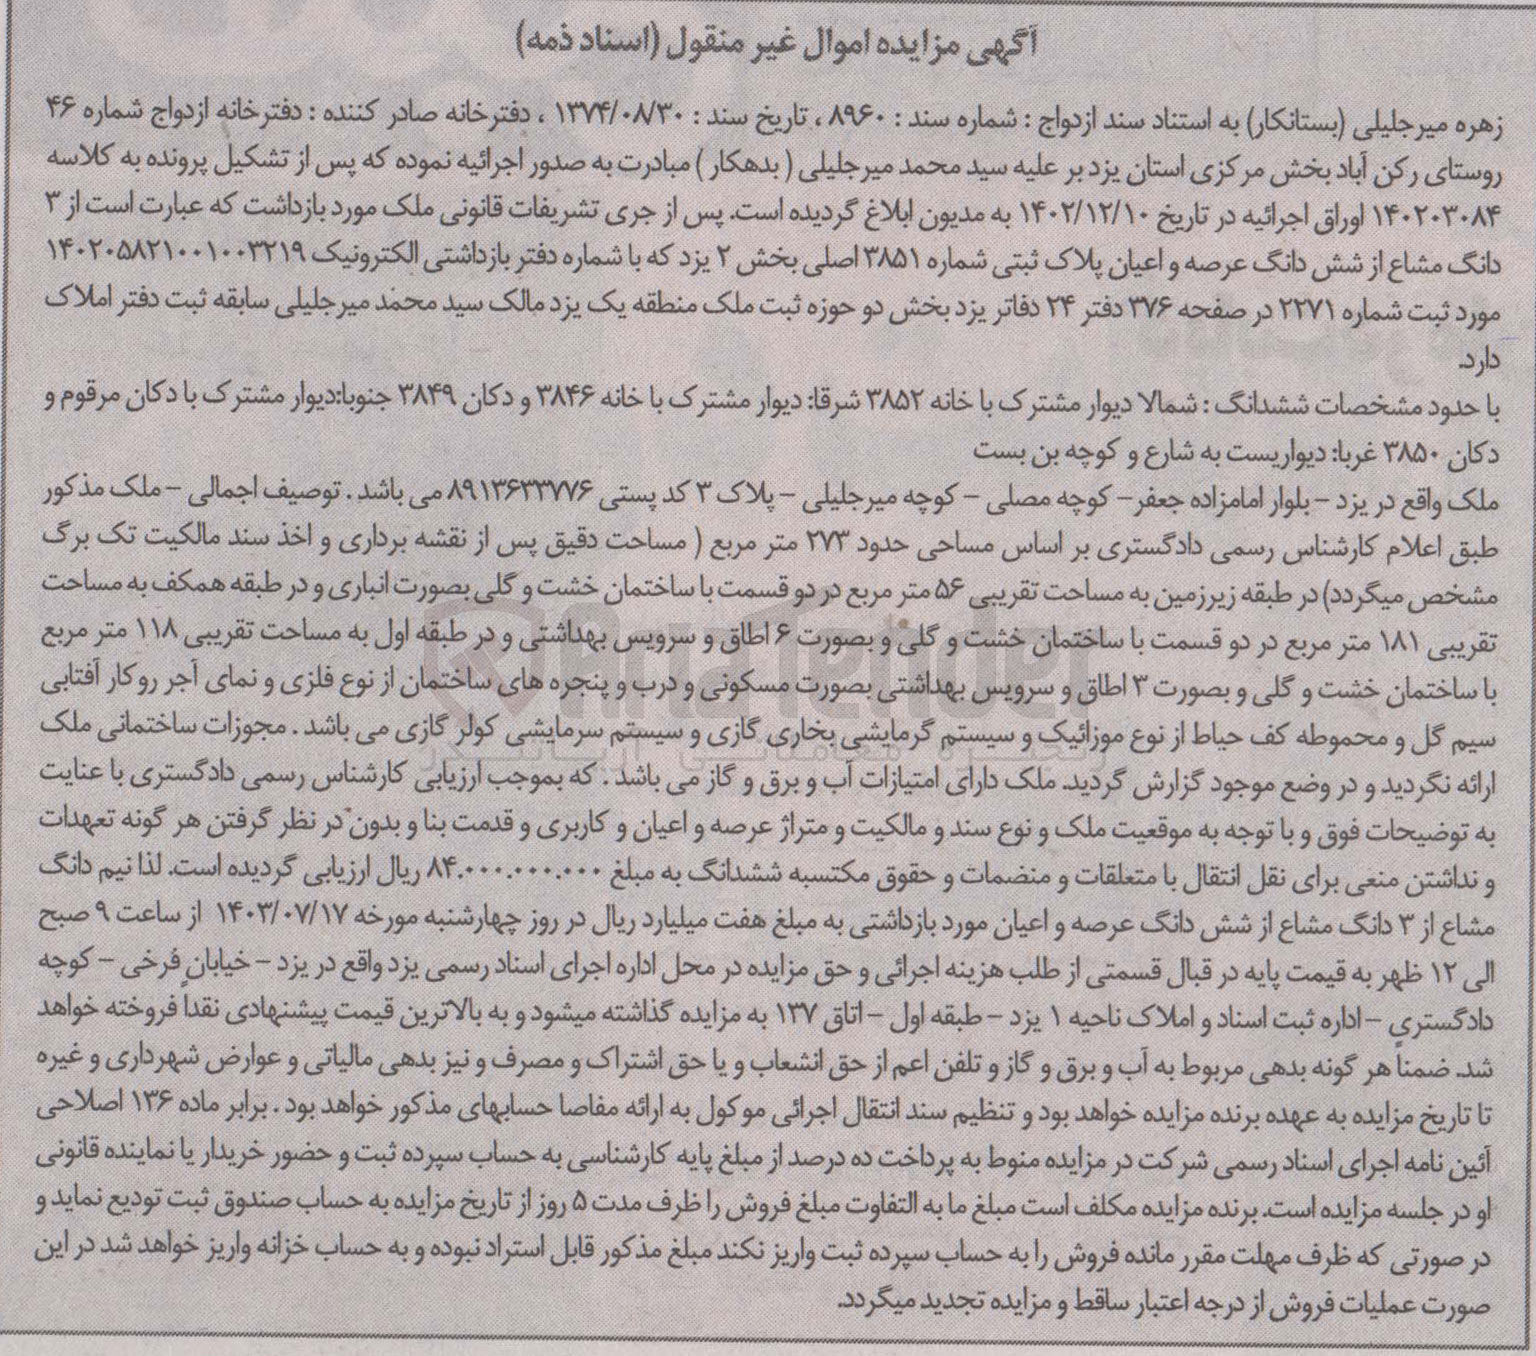 آگهی مزایده اموال غیر منقول (اسناد ذمه)
زهره میرجلیلی (بستانکار) به استناد سند ازدواج : شماره سند : ۸۹۶۰ ، تاریخ سند : ۱۳۷۴/۰۸/۳۰ ، دفترخانه صادر کننده : دفترخانه ازدواج شماره ۴۶
روستای رکن آباد بخش مرکزی استان یزد بر علیه سید محمد میرجلیلی ( بدهکار ) مبادرت به صدور اجرائیه نموده که پس از تشکیل پرونده به کلاسه
۱۴۰۲۰۳۰۸۴ اوراق اجرائیه در تاریخ ۱۴۰۲/۱۲/۱۰ به مدیون ابلاغ گردیده است. پس از جری تشریفات قانونی ملک مورد بازداشت که عبارت است از ۳
دانگ مشاع از شش دانگ عرصه و اعیان پلاک ثبتی شماره ۳۸۵۱ اصلی بخش ۲ یزد که با شماره دفتر بازداشتی الکترونیک ۱۴۰۲۰۵۸۲۱۰۰۱۰۰۳۲۱۹
مورد ثبت شماره ۲۲۷۱ در صفحه ۳۷۶ دفتر ۲۴ دفاتر یزد بخش دو حوزه ثبت ملک منطقه یک یزد مالک سید محمد میرجلیلی سابقه ثبت دفتر املاک
دارد.
با حدود مشخصات ششدانگ : شمالا دیوار مشترک با خانه ۳۸۵۲ شرقا: دیوار مشترک با خانه ۳۸۴۶ و دکان ۳۸۴۹ جنوبا:دیوار مشترک با دکان مرقوم و
دکان ۳۸۵۰ غربا: دیواریست به شارع و کوچه بن بست
ملک واقع در یزد – بلوار امامزاده جعفر– کوچه مصلی – کوچه میرجلیلی – پلاک ۳ کد پستی ۸۹۱۳۶۳۳۷۷۶ می باشد . توصیف اجمالی – ملک مذکور
طبق اعلام کارشناس رسمی دادگستری بر اساس مساحی حدود ۲۷۳ متر مربع ( مساحت دقیق پس از نقشه برداری و اخذ سند مالکیت تک برگ
مشخص میگردد) در طبقه زیرزمین به مساحت تقریبی ۵۶ متر مربع در دو قسمت با ساختمان خشت و گلی بصورت انباری و در طبقه همکف به مساحت
تقریبی ۱۸۱ متر مربع در دو قسمت با ساختمان خشت و گلی و بصورت ۶ اطاق و سرویس بهداشتی و در طبقه اول به مساحت تقریبی ۱۱۸ متر مربع
با ساختمان خشت و گلی و بصورت ۳ اطاق و سرویس بهداشتی بصورت مسکونی و درب و پنجره های ساختمان از نوع فلزی و نمای آجر رو کار آفتابی
سیم گل و محموطه کف حیاط از نوع موزائیک و سیستم گرمایشی بخاری گازی و سیستم سرمایشی کولر گازی می باشد . مجوزات ساختمانی ملک
ارائه نگردید و در وضع موجود گزارش گردید. ملک دارای امتیازات آب و برق و گاز می باشد . که بموجب ارزیابی کارشناس رسمی دادگستری با عنایت
به توضیحات فوق و با توجه به موقعیت ملک و نوع سند و مالکیت و متراژ عرصه و اعیان و کاربری و قدمت بنا و بدون در نظر گرفتن هر گونه تعهدات
و نداشتن منعی برای نقل انتقال با متعلقات و منضمات و حقوق مکتسبه ششدانگ به مبلغ ۸۴.۰۰۰.۰۰۰.۰۰۰ ریال ارزیابی گردیده است. لذا نیم دانگ
مشاع از ۳ دانگ مشاع از شش دانگ عرصه و اعیان مورد بازداشتی به مبلغ هفت میلیارد ریال در روز چهارشنبه مورخه ۱۴۰۳/۰۷/۱۷ از ساعت ۹ صبح
الی ۱۲ ظهر به قیمت پایه در قبال قسمتی از طلب هزینه اجرائی و حق مزایده در محل اداره اجرای اسناد رسمی یزد واقع در یزد – خیابان فرخی – کوچه
دادگستری – اداره ثبت اسناد و املاک ناحیه ۱ یزد – طبقه اول – اتاق ۱۳۷ به مزایده گذاشته میشود و به بالاترین قیمت پیشنهادی نقداً فروخته خواهد
شد. ضمناً هر گونه بدهی مربوط به آب و برق و گاز و تلفن اعم از حق انشعاب و یا حق اشتراک و مصرف و نیز بدهی مالیاتی و عوارض شهرداری و غیره
تا تاریخ مزایده به عهده برنده مزایده خواهد بود و تنظیم سند انتقال اجرائی موکول به ارائه مفاصا حسابهای مذکور خواهد بود . برابر ماده ۱۳۶ اصلاحی
آئین نامه اجرای اسناد رسمی شرکت در مزایده منوط به پرداخت ده درصد از مبلغ پایه کارشناسی به حساب سپرده ثبت و حضور خریدار یا نماینده قانونی
او در جلسه مزایده است. برنده مزایده مکلف است مبلغ ما به التفاوت مبلغ فروش را ظرف مدت ۵ روز از تاریخ مزایده به حساب صندوق ثبت تودیع نماید و
در صورتی که ظرف مهلت مقرر مانده فروش را به حساب سپرده ثبت واریز نکند مبلغ مذکور قابل استراد نبوده و به حساب خزانه واریز خواهد شد در این
صورت عملیات فروش از درجه اعتبار ساقط و مزایده تجدید میگردد.